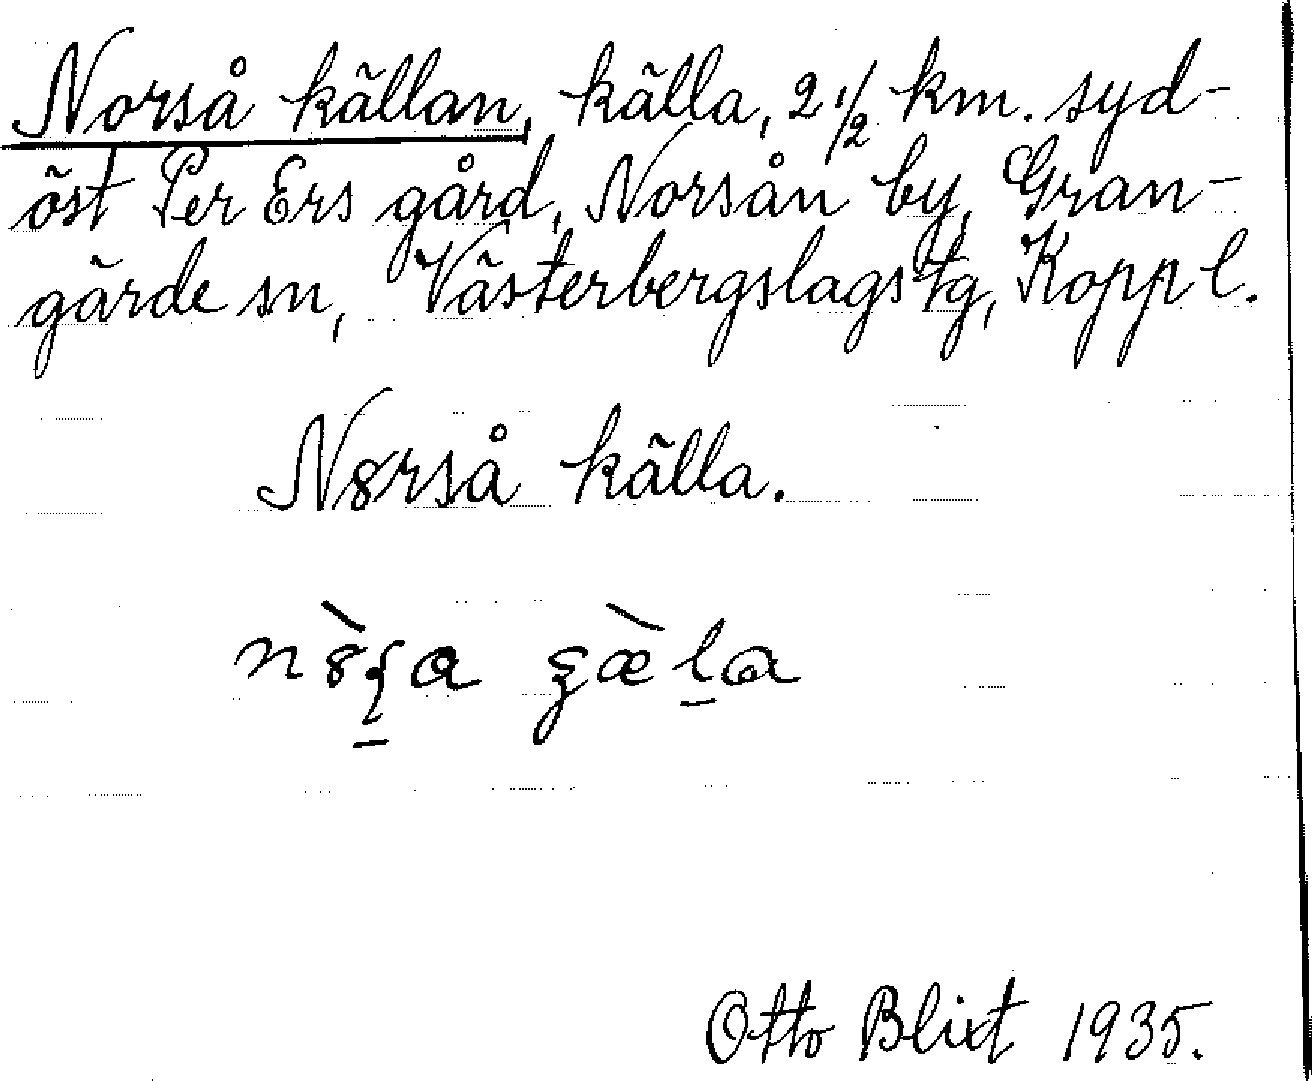 Norså källan, källa, 2 1/2 km. syd-
öst Per Ers gård, Norsån by, Gran-
gärde sn, Västerbergslags tg, Kopp l.
N8rså källa.
Otto Blixt 1935.